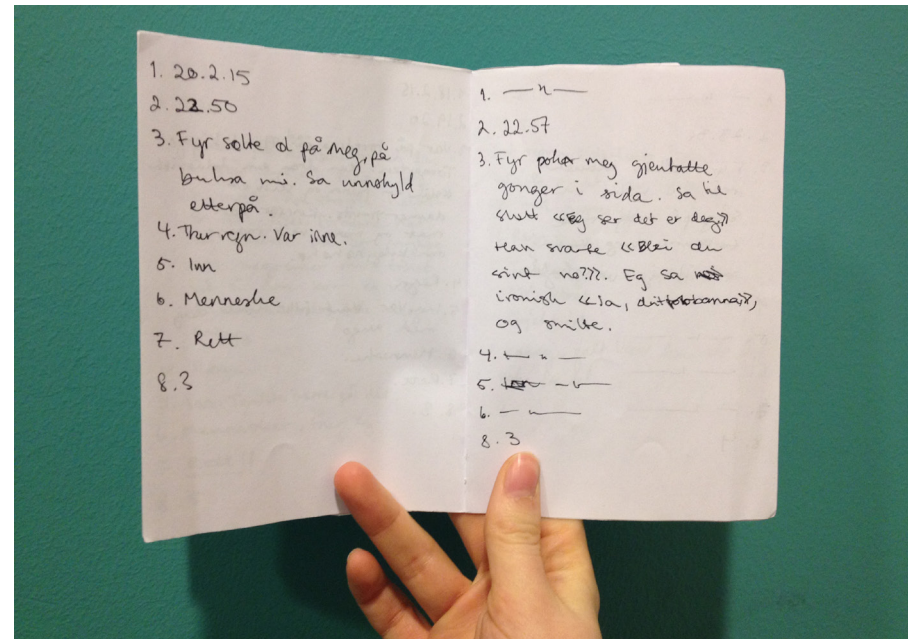 1. 20.2.15
2. 22.50
3. Fyr sølte øl på meg, på
buksa mi. Sa unnskyld
etterpå.
4. Thurregn. Var inne.
5. Inn
6. Menneske
7. Rett
8. 3
1. — n —
2. 22.57
3. Fyr poka meg gjentatte
gonger i sida. Sa til
slutt «Eg ser det er deg.»
Han svarte «Blei du
sint no?!». Eg sa
ironisk «Ja,
og smilte.
4. — n —
5. — n —
6. — n —
8. 3